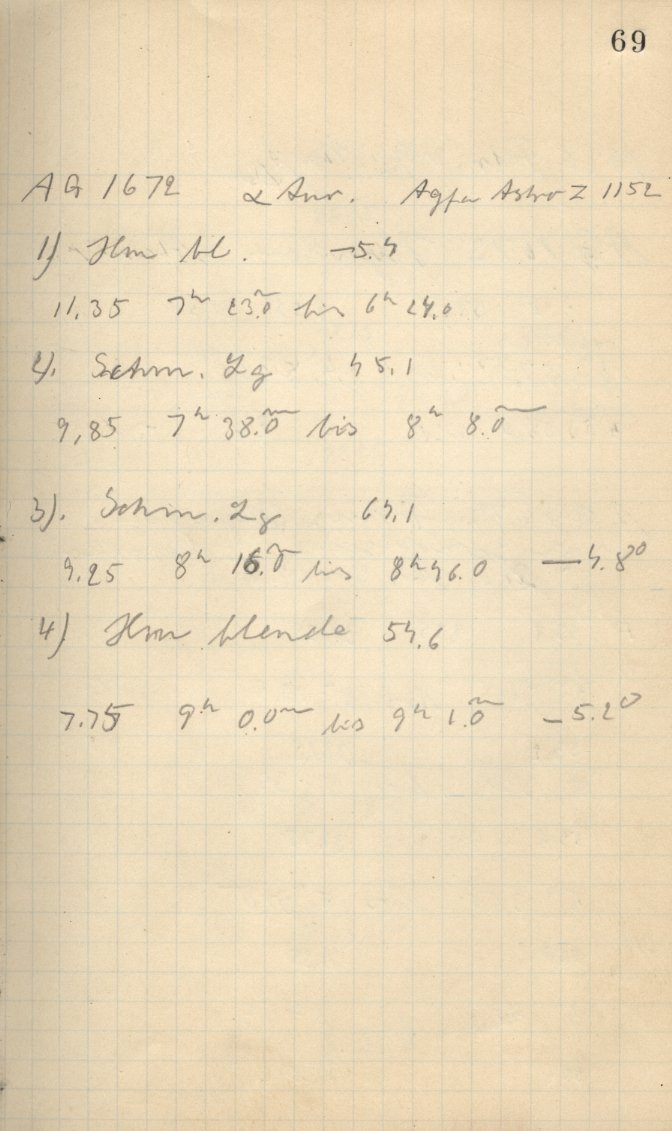 69
AG 1672 α Aur. Agfa Astro Z 1152
1) Hm bl. -5.4
11,35 7h 23.0m bis 6h 24.0
2). Schm. Lg 45.1
9,85 7h 38.0m bis 8h 8.0m
3). Schm. Lg 64.1
9.25 8h 16.0m bis 8h 46.0 — 4.8°
4) Hm blende 54.6
7.75 9h 0.0m bis 9h 1.0m - 5.2°